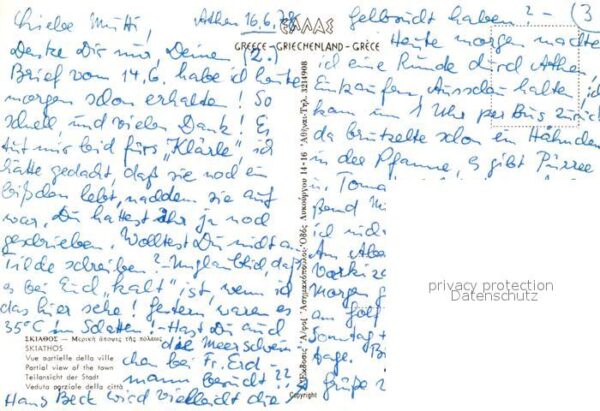 Liebe Mutti! Athen 16.6.78
Denke Dir nur, Deinen (2.)
Brief vom 14.6. habe ich heute
morgen schon erhalten! So
schnell, und vielen Dank! Es
tut mir leid fürs "Klärle", ich
hätte gedacht, daß sie noch ein
bißchen lebt, nachdem sie auf
war, Du hattest ihr ja noch
geschrieben. Wolltest Du nicht an
Tilde schreiben? - Unglaublich, daß
es bei Euch "kalt" ist, wenn ich
das hier sehe! Gestern waren es
35°C im Schatten! - Hast Du auch
die Meerschwein
chen bei Fr. Erd-
mann besucht??
Hans Beck wird vielleicht die
ΕΛΛΑΣ
GREECE - GRIECHENLAND - GRÈCE
ΣΚΙΑΘΟΣ - Μερική άποψις της πόλεως
SKIATHOS
Vue partielle della ville
Partial view of the town
Teilansicht der Stadt
Veduta parziale della città
14-16 Αθήναι-Τηλ. 3214908
Copyright
Gelbsucht haben? - (3
Heute morgen machte
ich eine Runde durch Athen,
Einkaufen, Ausschau halten, ich
kam um 1 Uhr per Bus zurück
da brutzelte schon ein Hähnchen
in der Pfanne, es gibt Pürree
u. Toma
ich nich
Am Abe
Morgen g
am Golf
Sonntag
tage.
Grüße
privacy protection
Datenschutz